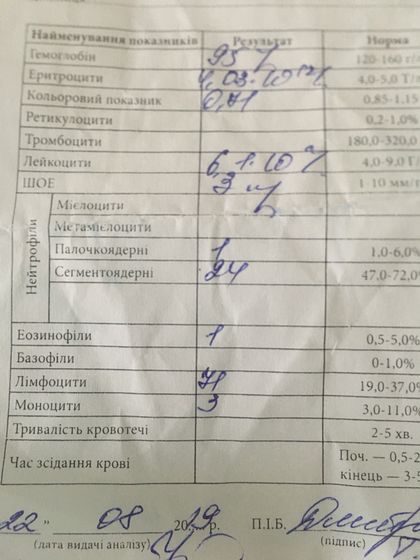 Найменування показників Результат Норма
Гемоглобін 95 г/л 120-160 г/
Еритроцити 4,03·10¹²/л 4,0-5,0 Т/
Кольоровий показник 0,71 0,85-1,15
Ретикулоцити 0,2-1,0%
Тромбоцити 180,0-320,
Лейкоцити 6,1·10⁹/л 4,0-9,0 Г/
ШОЕ 3 1-10 мм/
Нейтрофіли
Мієлоцити
Метамієлоцити
Палочкоядерні 1 1,0-6,0%
Сегментоядерні 24 47,0-72,0%
Еозинофіли 1 0,5-5,0%
Базофіли 0-1,0%
Лімфоцити 71 19,0-37,0%
Моноцити 3 3,0-11,0%
Тривалість кровотечі 2-5 хв.
Час зсідання крові Поч. — 0,5-2
кінець — 3-5
22 " 08 2019 р. П.І.Б.
(дата видачі аналізу) (підпис)